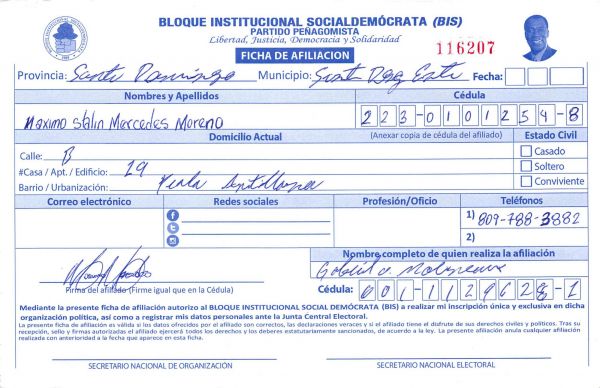 BLOQUE INSTITUCIONAL SOCIALDEMÓCRATA (BIS)
PARTIDO PEÑAGOMISTA
Libertad, Justicia, Democracia y Solidaridad
FICHA DE AFILIACION
116207
Provincia: Santo Domingo Municipio: Santo Dgo Este Fecha:
Nombres y Apellidos Cédula
Maximo Stalin Mercedes Moreno 223-0101254-8
Domicilio Actual (Anexar copia de cédula del afiliado) Estado Civil
Calle: B Casado
#Casa / Apt. / Edificio: 19 Soltero
Barrio / Urbanización: Perla Antillana Conviviente
Correo electrónico Redes sociales Profesión/Oficio Teléfonos
1) 809-788-3882
2)
Nombre completo de quien realiza la afiliación
Firma del afiliado (Firme igual que en la Cédula)
Cédula: 001-1129628-1
Mediante la presente ficha de afiliación autorizo al BLOQUE INSTITUCIONAL SOCIAL DEMÓCRATA (BIS) a realizar mi inscripción única y exclusiva en dicha
organización política, así como a registrar mis datos personales ante la Junta Central Electoral.
La presente ficha de afiliación es válida si los datos ofrecidos por el afiliado son correctos, las declaraciones veraces y si el afiliado tiene el disfrute de sus derechos civiles y políticos. Tras su
recepción, sello y firmas autorizadas el afiliado ejercerá todos los derechos y los deberes estatutariamente sancionados, de acuerdo a la ley. La presente afiliación anula cualquier afiliación
realizada con anterioridad a la fecha que aparece en esta ficha.
SECRETARIO NACIONAL DE ORGANIZACIÓN SECRETARIO NACIONAL ELECTORAL